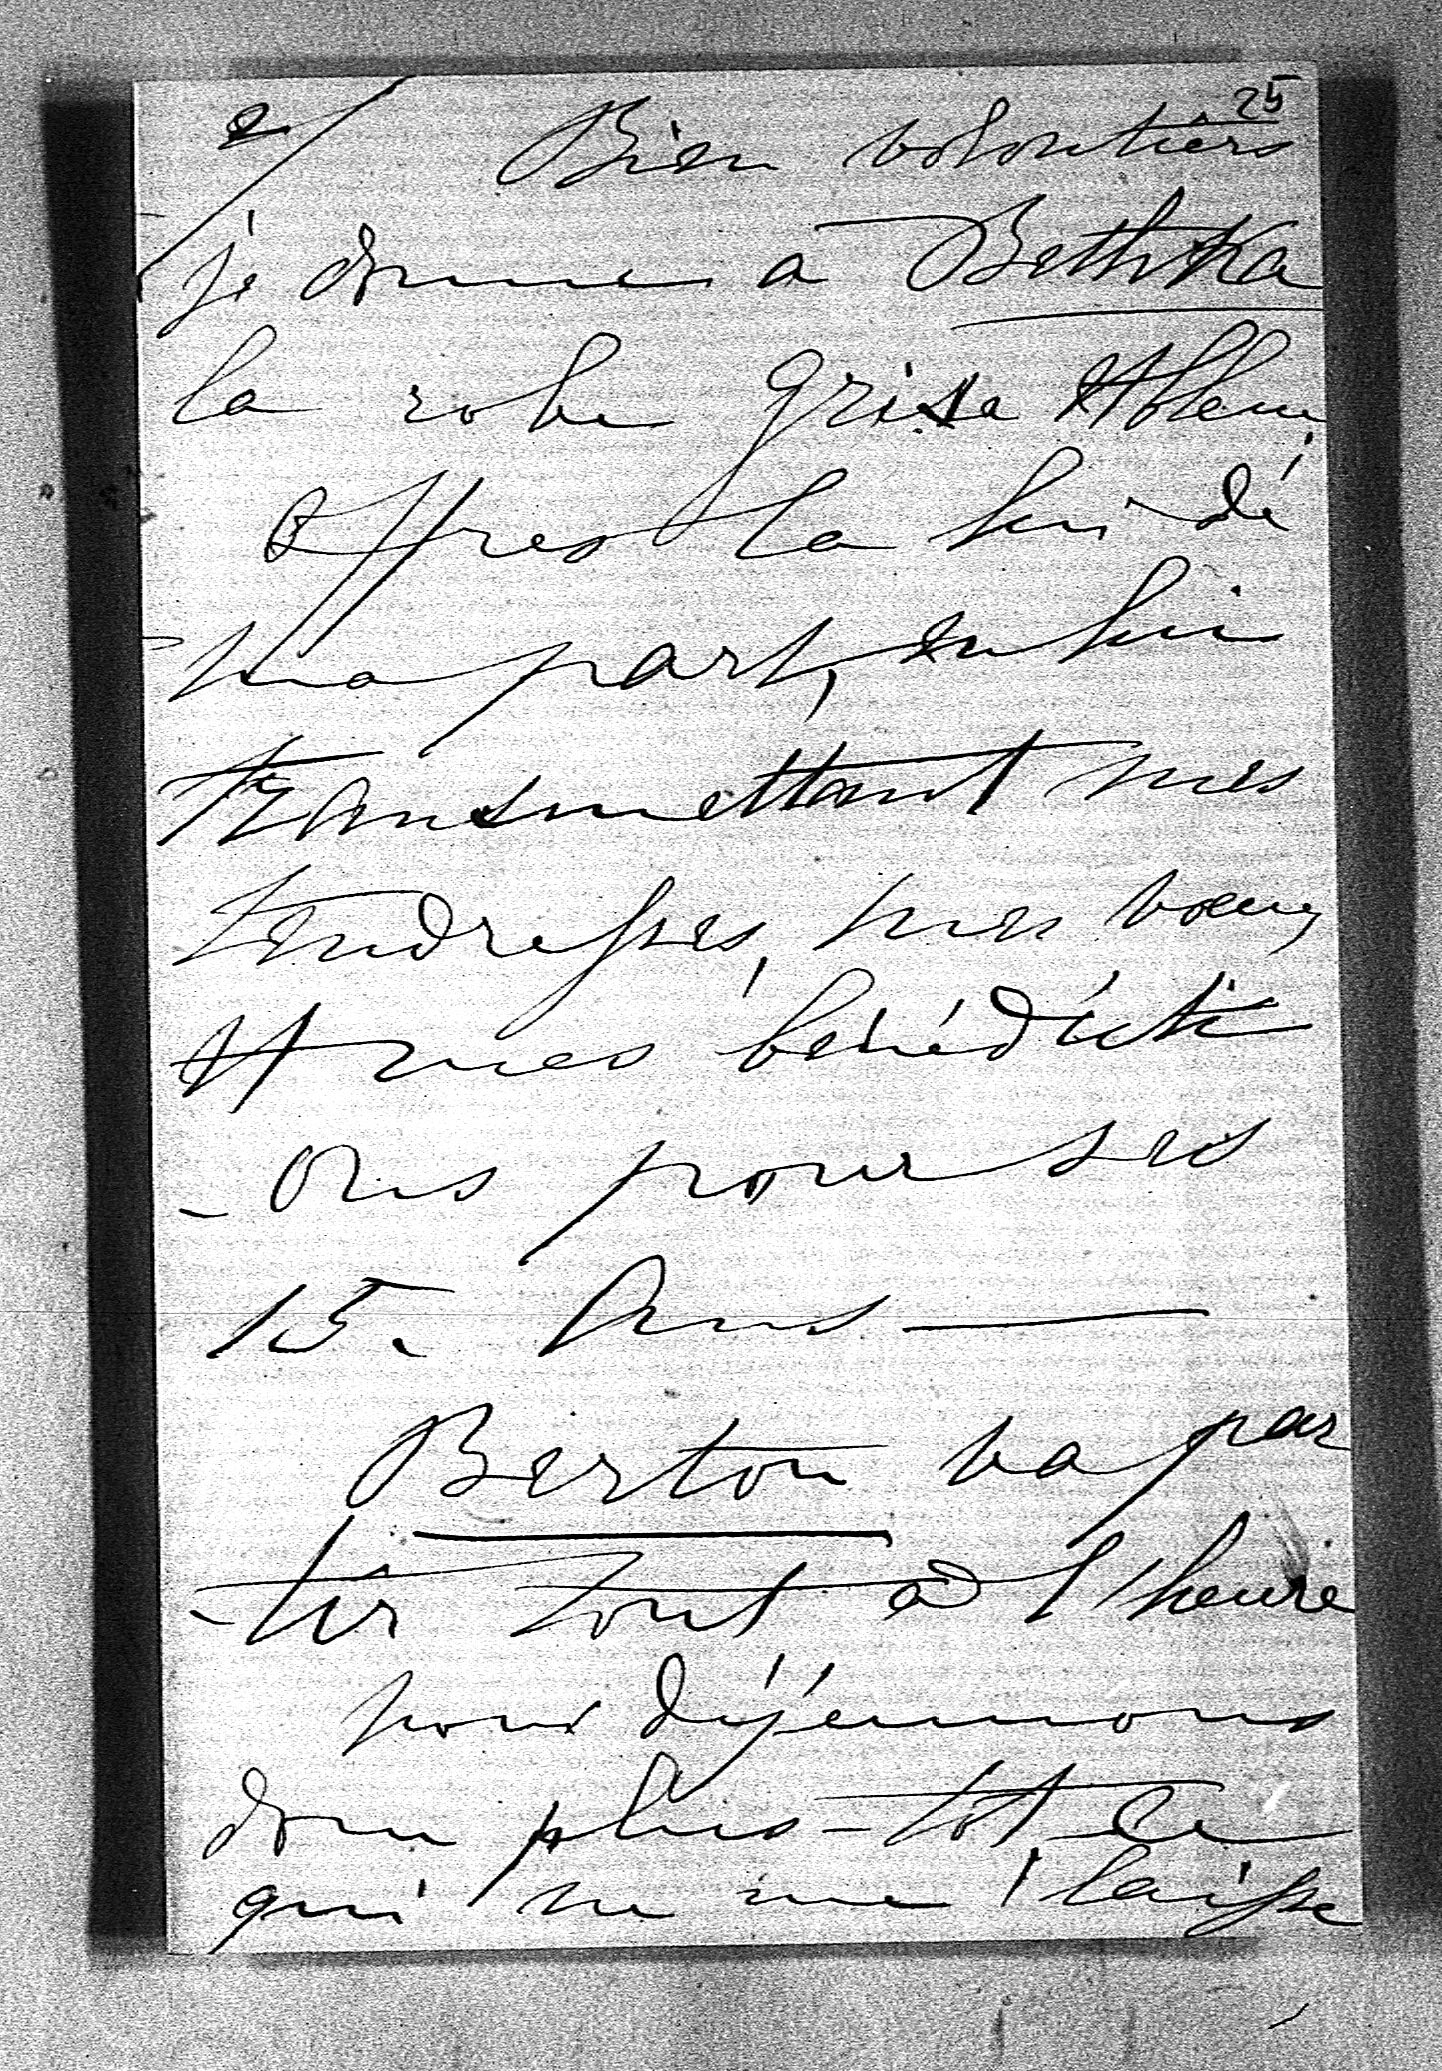 25
2/ Bien volontiers
je donne a Bethka
la robe grise et bleue,
Offres la lui de
ma part, en lui
transmettant mes
tendresses, mes voeux
et mes bénédicti
-ons pour ses
15. Ans —
Berton va par
-tir tout à l'heure
nous déjeunons
donc plus-tôt ce
qui ne me laisse